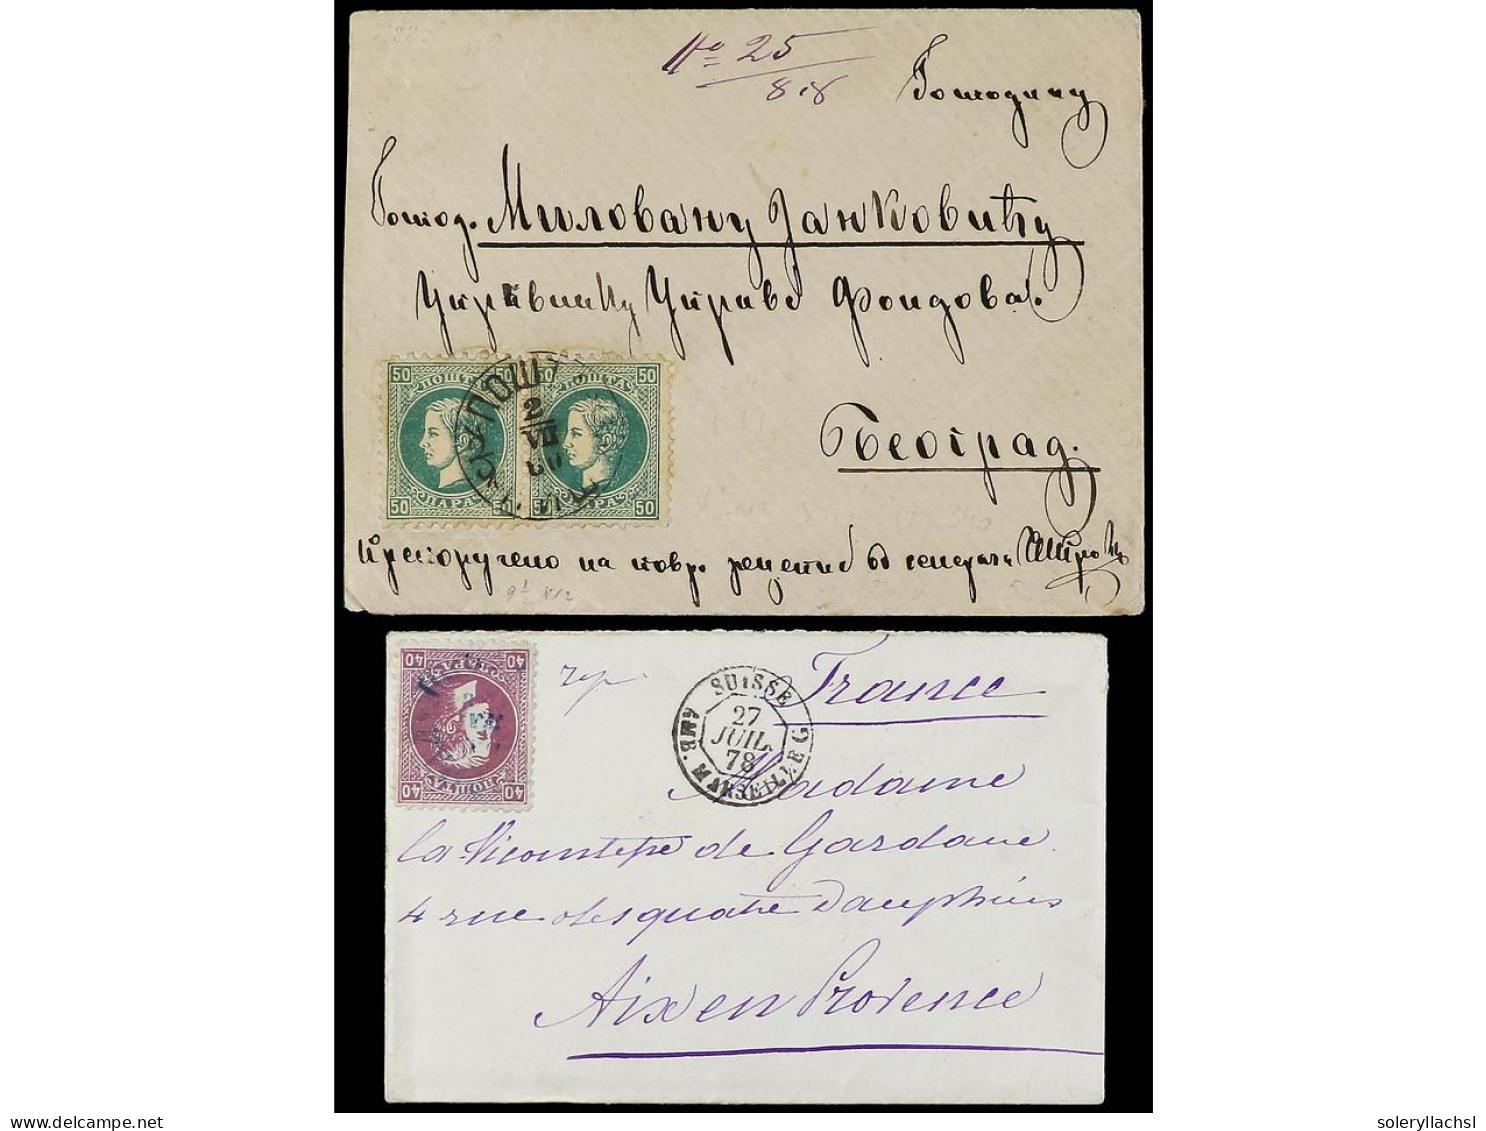 № 25
8.8
Господину
Господ. Миловану Јанковићу
Управнику Управе Фондова.
50 ПОШТА 50 50 ПОШТА 50
2
VII
80
50 ПАРА 50 50 ПАРА 50
Београд.
Препоручено на повр. рецепис од
40 ПОШТА 40
40 40
SUISSE
27
JUIL.
78
AMB. MARSEILLE G
France
Madame
la Vicomtesse de Gardane
4 rue des quatre Dauphins
Aix en Provence
delcampe.net
soleryllachsl